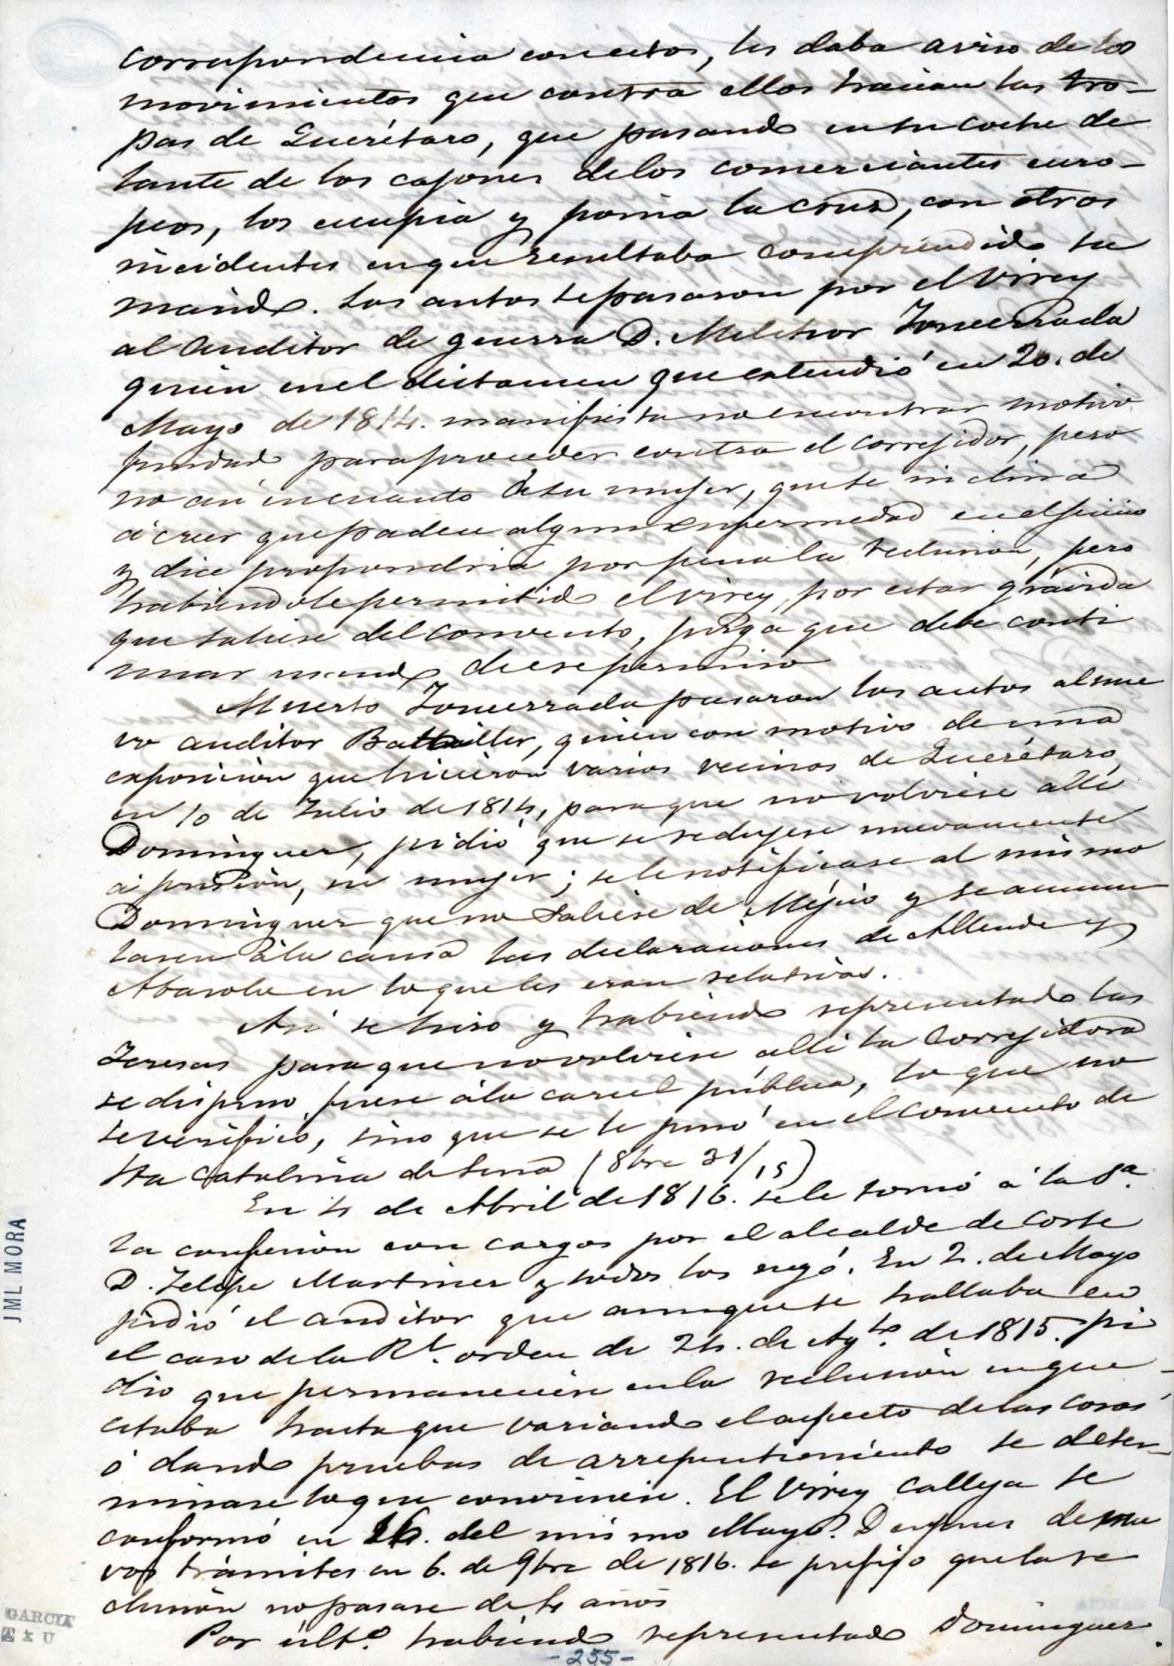 correspondencia con estos, les daba aviso de los
movimientos que contra ellos hacian las tro-
pas de Querétaro, que pasando en su coche de
lante de los cajones de los comerciantes euro-
peos, los escupia y ponia la cruz, con otros
incidentes en que resultaba comprendido su
marido. Los autos se pasaron por el Virrey
al Auditor de guerra D. Melchor Foncerrada
quien en el dictamen que estendió en 20. de
Mayo de 1814. manifiesta no encontrar motivo
fundado para proceder contra el corregidor, pero
no asi en cuanto á su muger, que se inclina
á creer que padece alguna enfermedad en el juicio
y dice propondria por pena la reclusion, pero
habiendole permitido el virey, por estar gravida
que saliese del convento, juzga que debe conti
nuar usando de ese permiso
Muerto Foncerrada pasaron los autos al nue
vo auditor Bataller, quien con motivo de una
exposicion que hicieron varios vecinos de Querétaro
en 10 de Julio de 1814, para que no volviese alli
Dominguez, pidió que se redujese nuevamente
á prision, su muger; se le notificase al mismo
Dominguez que no saliese de Méjico y se acumu
lasen á la causa las declaraciones de Allende y
Abasolo en lo que les eran relativas.
Asi se hiso y habiendo representado las
Teresas para que no volviese alli la Corregidora
se dispuso fuese á la carcel pública, lo que no
se verificó, sino que se le puso en el Convento de
Sta Catalina de Sena (8bre 31/15)
En 4 de Abril de 1816. se le tomó á la Sa.
la confesion con cargos por el alcalde de Corte
D. Felipe Martinez y todos los negó. En 2. de Mayo
pidió el auditor que aunque se hallaba en
el caso de la Rl. orden de 24. de Agto. de 1815. pi
dio que permaneciese en la reclusion en que
estaba hasta que variando el aspecto de las cosas
ó dando pruebas de arrepentimiento se deter-
minase lo que conviniese. El Virey Calleja se
conformó en 16. del mismo Mayo. Despues de nue
vos trámites en 6. de 9bre de 1816. se prefijo que la re
clusion no pasase de 4 años
Por últo. habiendo representado Dominguez
- 255 -
JML MORA
GARCIA